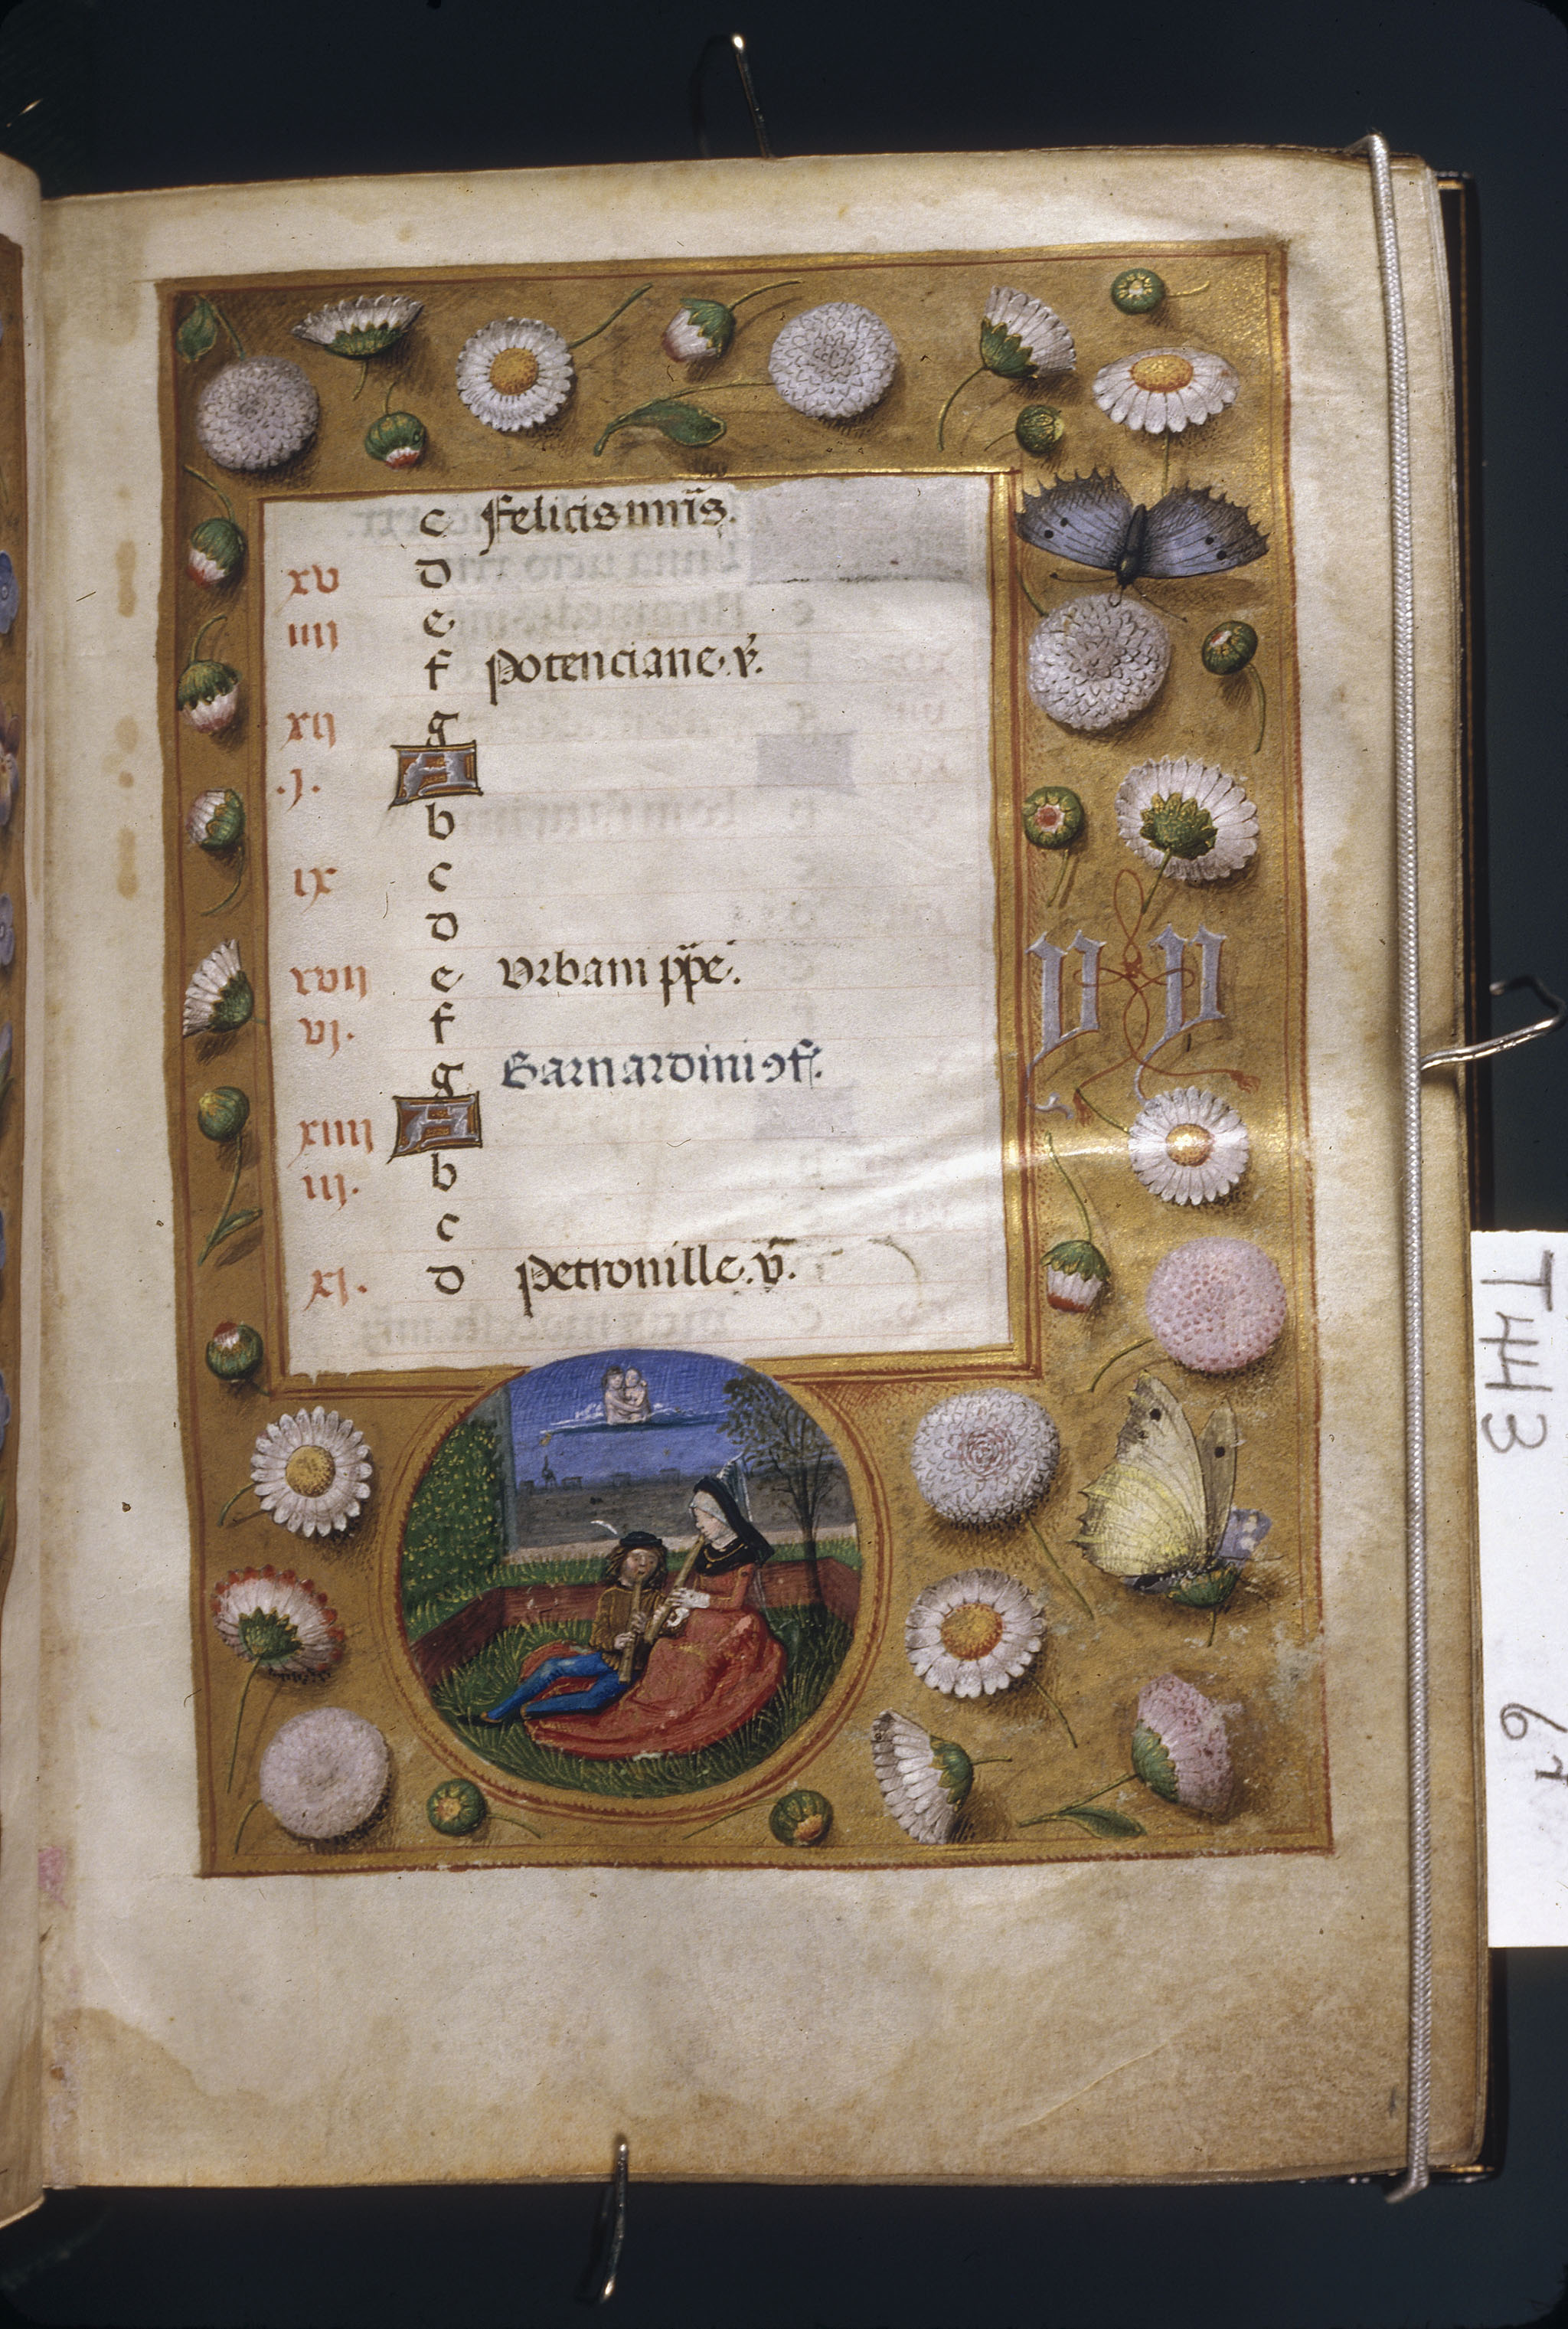 c felicis mr̄is.
xv d
iiij e
f Potenciane. v̄.
xij g
.j. A
b
ix c
d
xvij e Urbani pp̄e.
vj. f
g Barnardini ↄf.
xiiij A
iij. b
c
xj. d Petronille. v̄.
V V
T443
6r